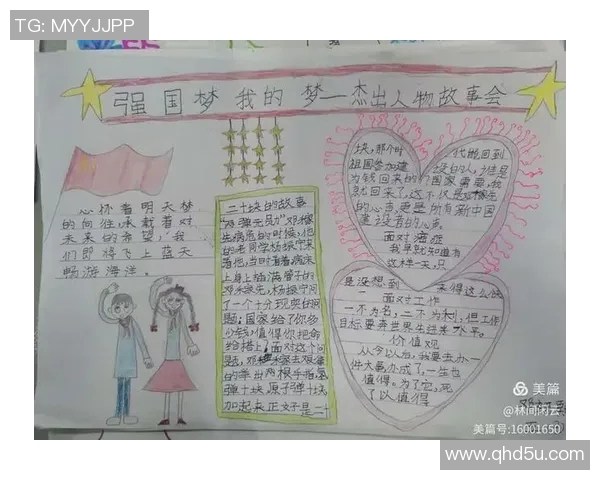 TG: MYYJJPP
强国梦 我的梦—杰出人物故事会
心怀着明天梦
的向往,承载着对
未来的希望,我
们即将飞上蓝天
畅游海洋。
二十块的故事
病危的时候,他
的老同学杨振宁来
看他,当时看着病床
上身上插满管子的
邓稼先,杨振宁问
了一个十分现实的问
题:国家给了你多
少钱,值得你把命
给搭上,面对这个问
弹十块,原子弹十块
加起来正好是二十
块,那个时代能回到
祖国参加建设的人,谁是
为钱回来的?国家需要,我
就回来了,这不仅是邓稼先
的心声,更是所有新中国
建设者的心声
面对癌症
我早就知道有
这样一天,只
是没想到 来得这么快
面对工作
一不为名,二不为利,但工作
目标要奔世界先进水平。
价值观
从今以后,我要去办一
件大事,办成了,一生也
值得。为了它,死
了以值得
美篇
@林间闲云
美篇号:16001650
www.qhd5u.com